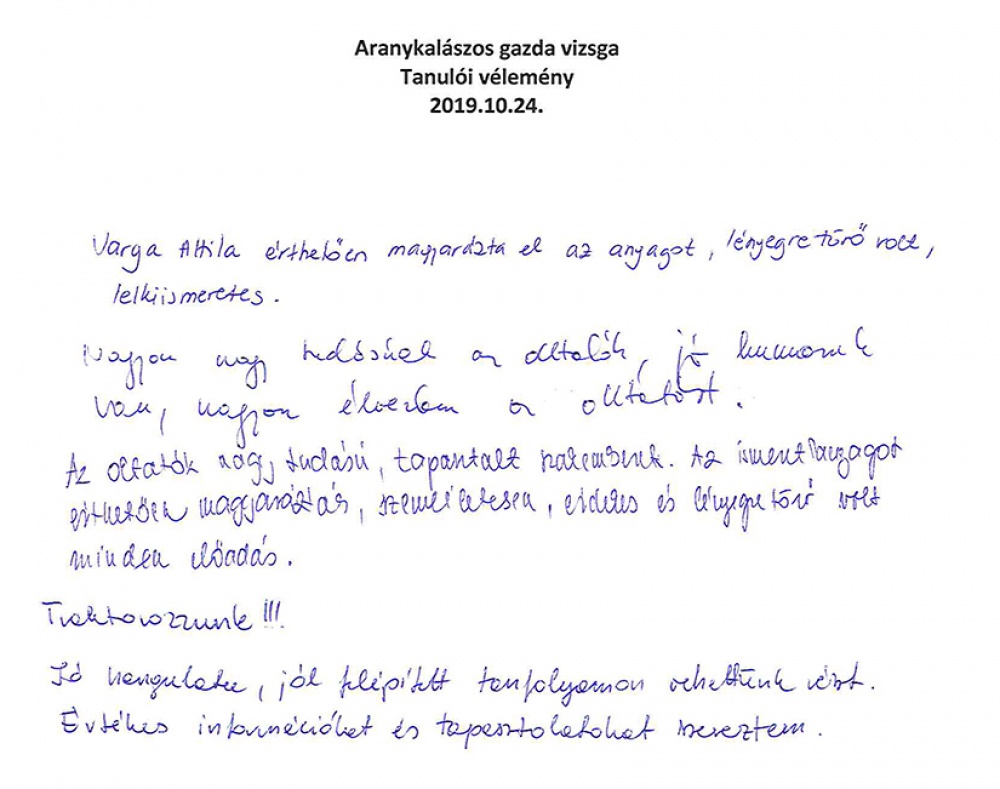 Aranykalászos gazda vizsga
Tanulói vélemény
2019.10.24.
Varga Attila érthetően magyarázta el az anyagot, lényegretörő volt,
lelkiismeretes.
Nagyon nagy tudásúak az oktatók, jó humoruk
van, nagyon élveztem az oktatást.
Az oktatók nagy tudású, tapasztalt szakemberek. Az
érthetően magyarázták, szemléletesen, érdekes és lényegretörő volt
minden előadás.
Traktorozzunk !!!
Jó hangulatú, jól felépített tanfolyamon vehettünk részt.
Értékes információkat és tapasztalatokat szereztem.